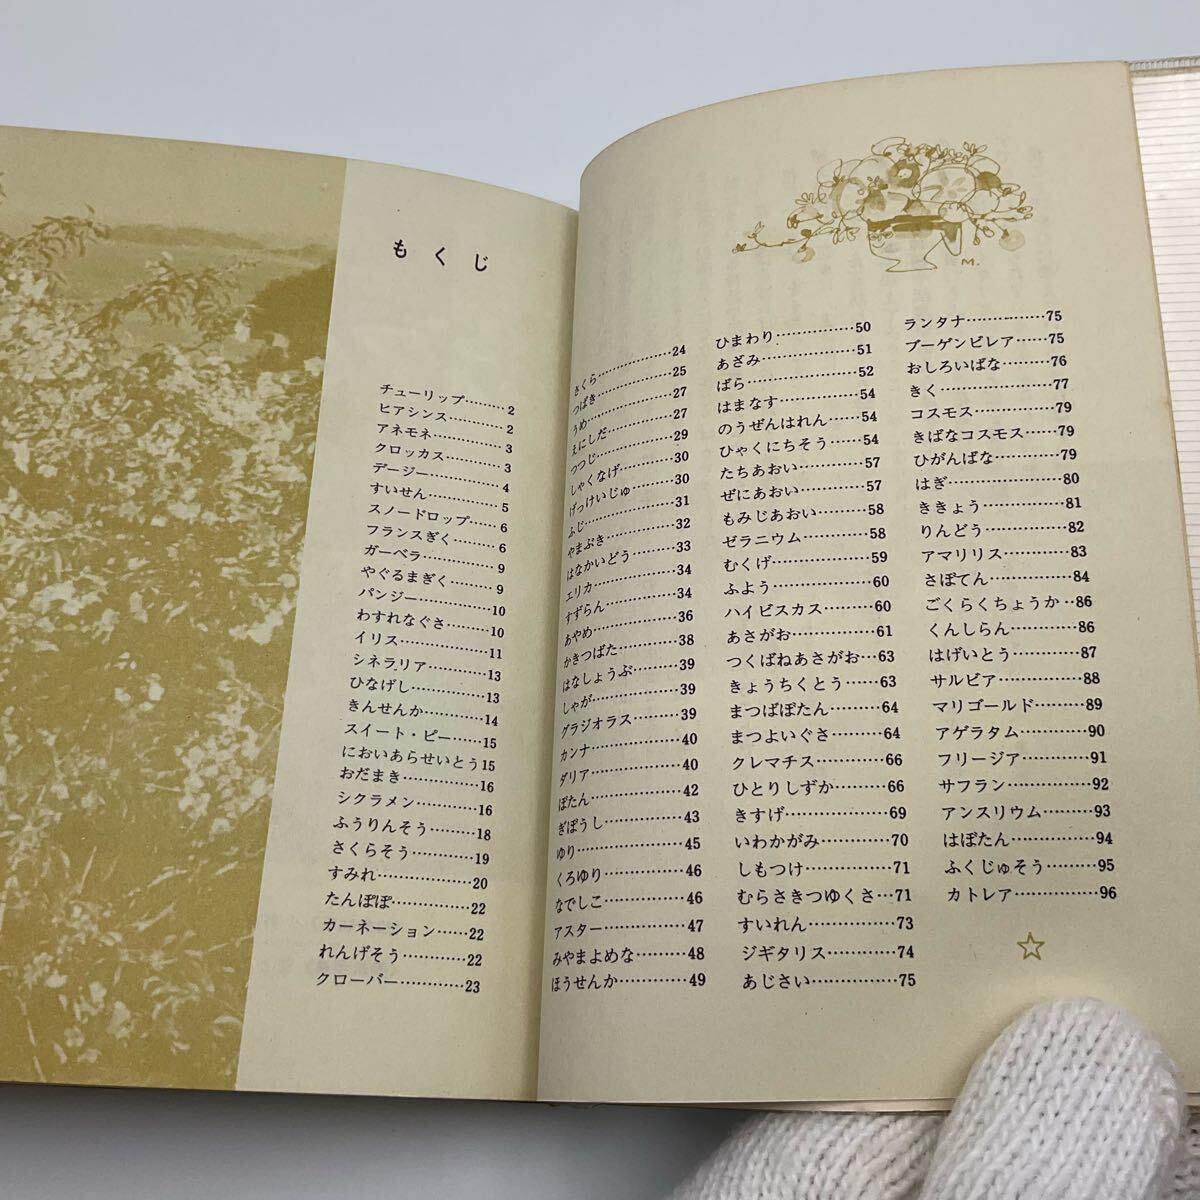 もくじ
チューリップ………2
ヒアシンス…………2
アネモネ……………3
クロッカス…………3
デージー……………4
すいせん……………5
スノードロップ……6
フランスぎく………6
ガーベラ……………9
やぐるまぎく………9
パンジー……………10
わすれなぐさ………10
イリス………………11
シネラリア…………13
ひなげし……………13
きんせんか…………14
スイート・ピー……15
においあらせいとう15
おだまき……………16
シクラメン…………16
ふうりんそう………18
さくらそう…………19
すみれ………………20
たんぽぽ……………22
カーネーション……22
れんげそう…………22
クローバー…………23
さくら………………24
つばき………………25
うめ…………………27
えにしだ……………27
つつじ………………29
しゃくなげ…………30
げっけいじゅ………30
ふじ…………………31
やまぶき……………32
はなかいどう………33
エリカ………………34
すずらん……………34
あやめ………………36
かきつばた…………38
はなしょうぶ………39
しゃが………………39
グラジオラス………39
カンナ………………40
ダリア………………40
ぼたん………………42
ぎぼうし……………43
ゆり…………………45
くろゆり……………46
なでしこ……………46
アスター……………47
みやまよめな………48
ほうせんか…………49
ひまわり……………50
あざみ………………51
ばら…………………52
はまなす……………54
のうぜんはれん……54
ひゃくにちそう……54
たちあおい…………57
ぜにあおい…………57
もみじあおい………58
ゼラニウム…………58
むくげ………………59
ふよう………………60
ハイビスカス………60
あさがお……………61
つくばねあさがお…63
きょうちくとう……63
まつばぼたん………64
まつよいぐさ………64
クレマチス…………66
ひとりしずか………66
きすげ………………69
いわかがみ…………70
しもつけ……………71
むらさきつゆくさ…71
すいれん……………73
ジギタリス…………74
あじさい……………75
ランタナ……………75
ブーゲンビレア……75
おしろいばな………76
きく…………………77
コスモス……………79
きばなコスモス……79
ひがんばな…………79
はぎ…………………80
ききょう……………81
りんどう……………82
アマリリス…………83
さぼてん……………84
ごくらくちょうか‥86
くんしらん…………86
はげいとう…………87
サルビア……………88
マリゴールド………89
アゲラタム…………90
フリージア…………91
サフラン……………92
アンスリウム………93
はぼたん……………94
ふくじゅそう………95
カトレア……………96
☆
M.